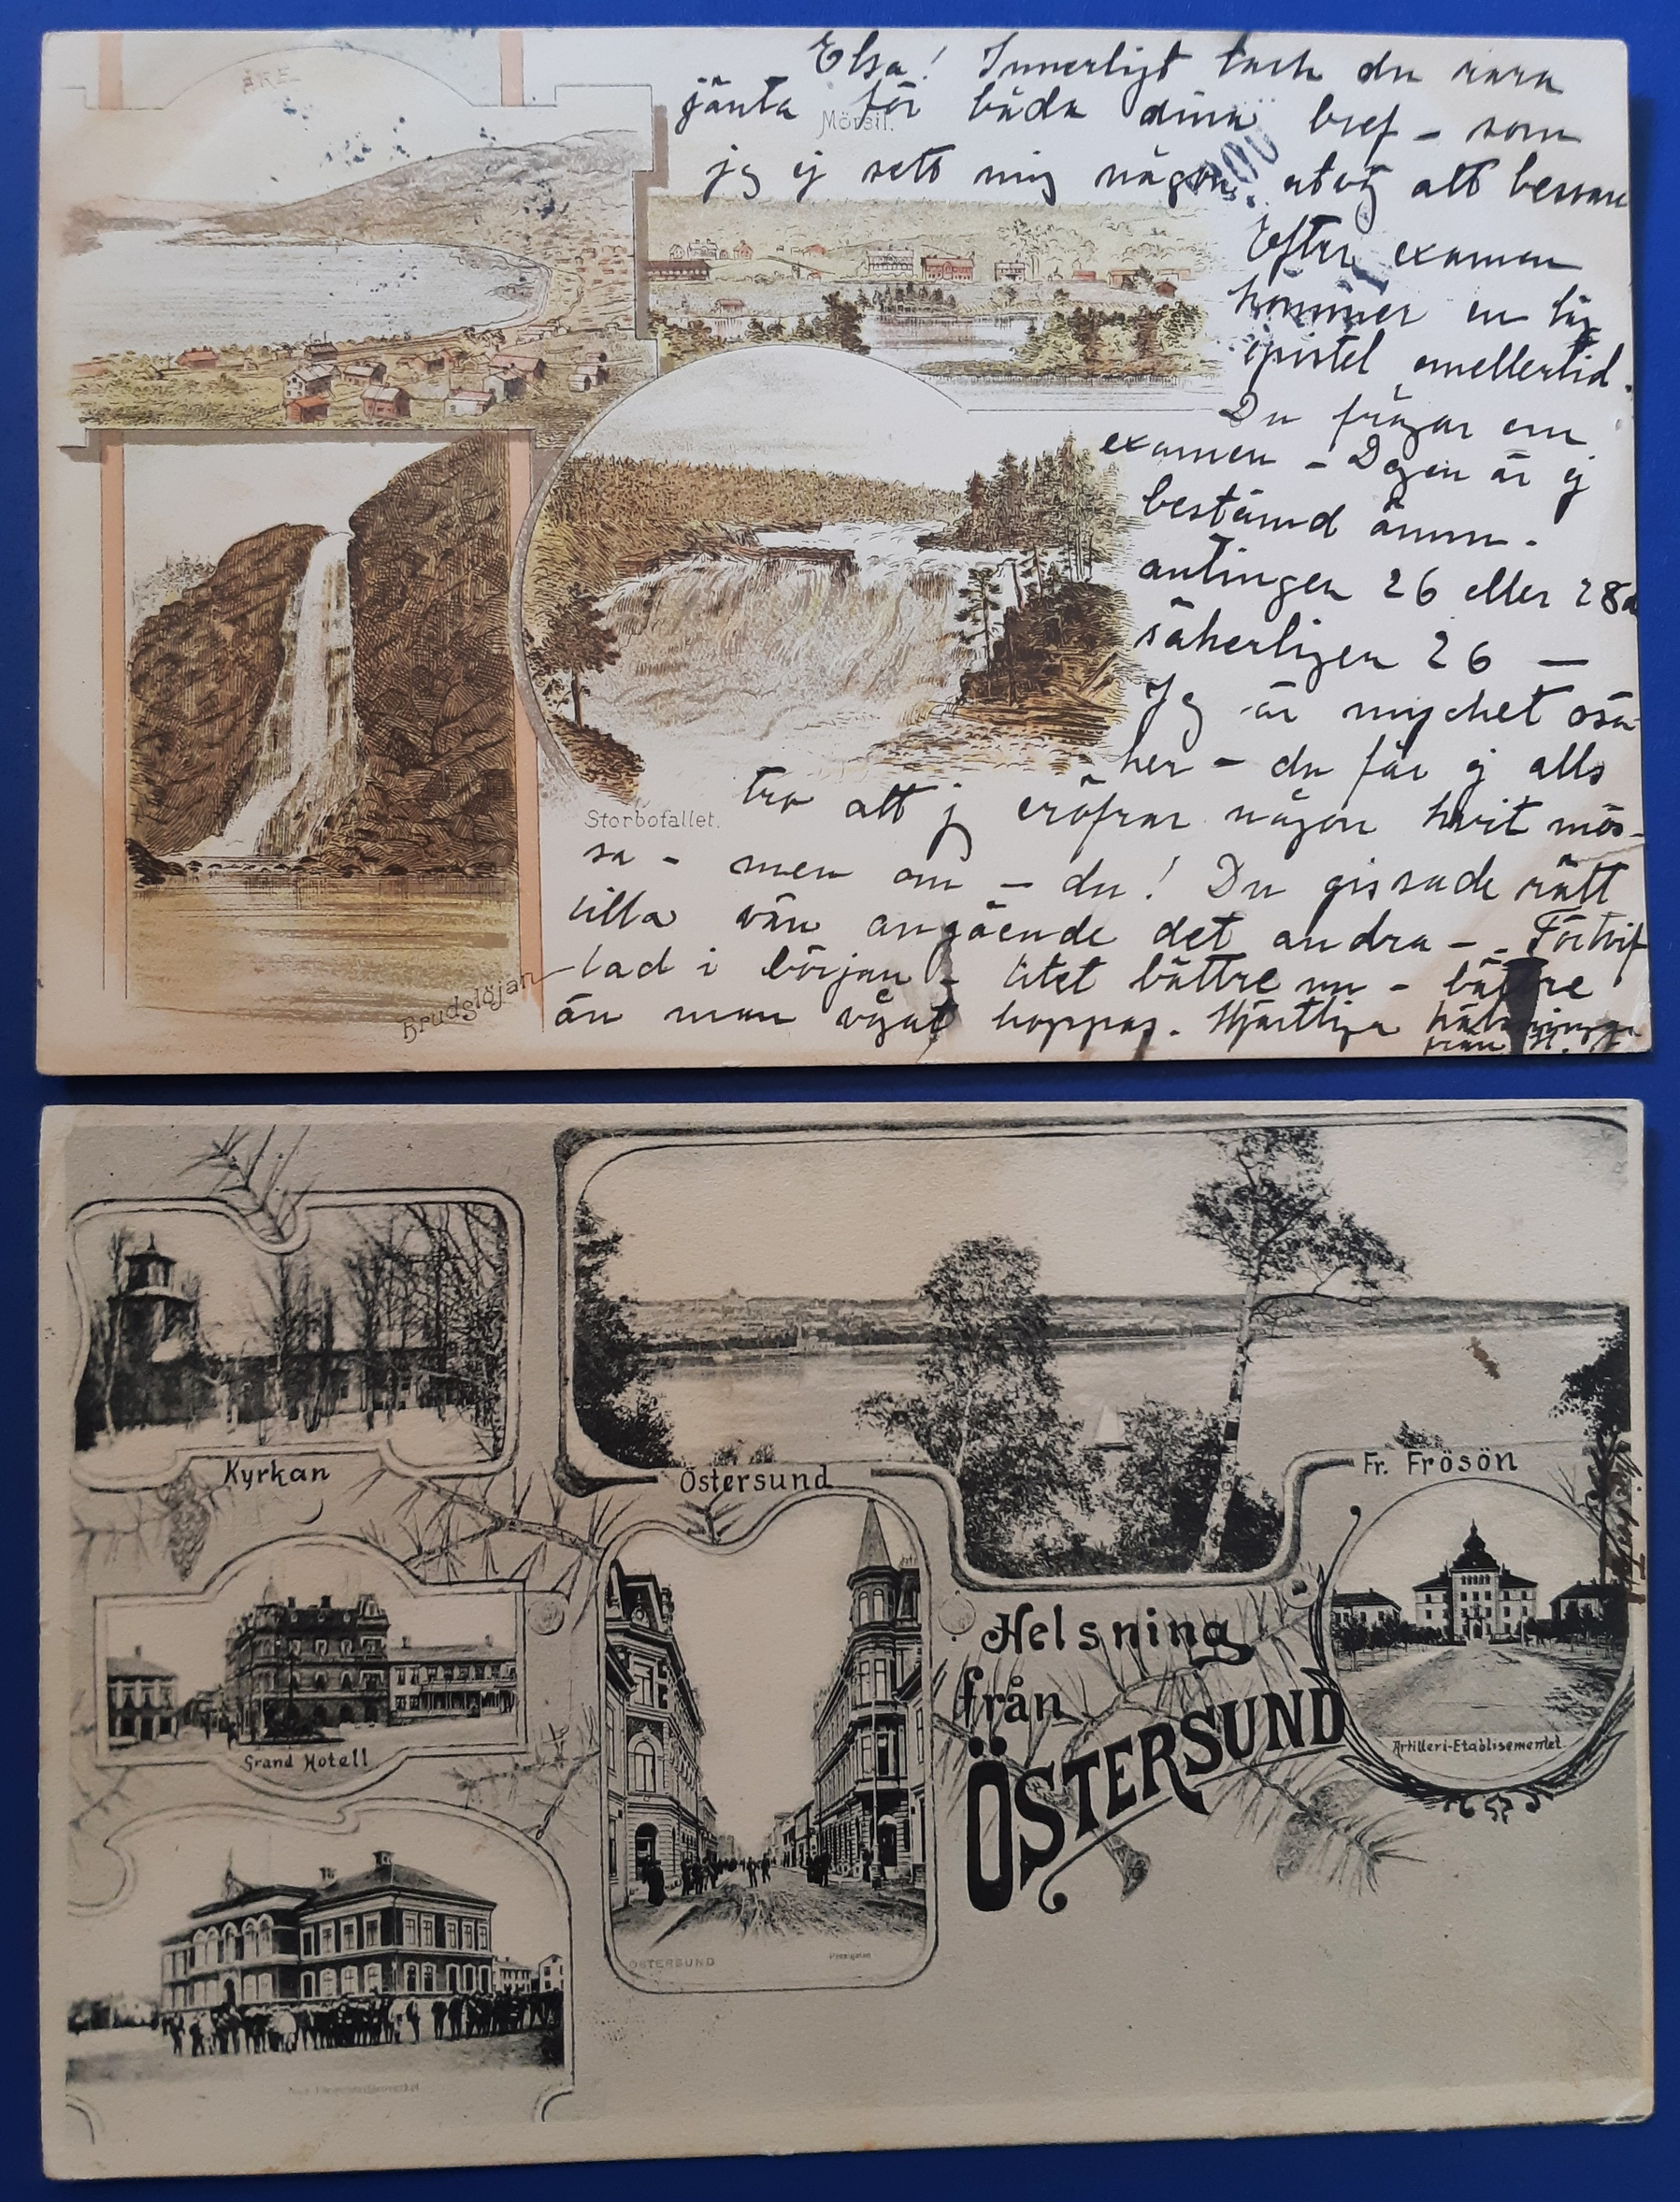 ÅRE
Mörsil.
Elsa! Innerligt tack du rara
jänta för båda dina bref – som
jg ej sett mig någon utväg att besvara
Efter examen
kommer en lång
epistel emellertid.
Du frågar om
examen – Dagen är ej
bestämd ännu.
antingen 26 eller 28de
säkerligen 26 –
Jg är mycket osä-
ker – du får ej alls
tro att jg eröfrar någon hvit mös-
sa – men om – du! Du gissade rätt
lilla vän angående det andra – Förtvif-
lad i början – litet bättre nu – bättre
än man vågat hoppas. Hjärtliga hälsningar
från
Storbofallet.
Brudslöjan
Kyrkan
Östersund
Fr. Frösön
Grand Hotell
Helsning
från
ÖSTERSUND
Artilleri-Etablisementet
ÖSTERSUND
Prestgatan